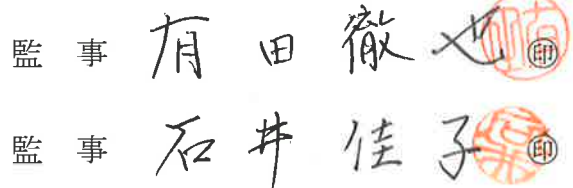 監事 有田徹也 ㊞
監事 石井佳子 ㊞